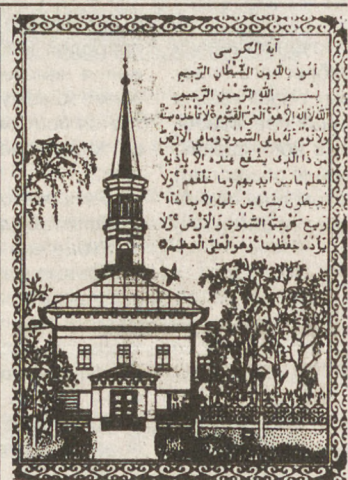 آية الكرسى
اعوذ بالله من الشَّيْطَانِ الرَّجِيمِ
بِسْمِ اللهِ الرَّحْمنِ الرَّحِيمِ
اَللهُ لَا اِلهَ اِلَّا هُوَ اَلْحَىُّ الْقَيُّومُ لَا تَأْخُذُهُ سِنَةٌ
وَلَا نَوْمٌ لَهُ مَا فِى السَّمٰوَتِ وَمَا فِى الْاَرْضِ
مَنْ ذَا الَّذِى يَشْفَعُ عِنْدَهُ اِلَّا بِاِذْنِهِ
يَعْلَمُ مَا بَيْنَ اَيْدِيهِمْ وَمَا خَلْفَهُمْ وَلَا
يُحِيطُونَ بِشَىْءٍ مِنْ عِلْمِهِ اِلَّا بِمَا شَاءَ
وَسِعَ كُرْسِيُّهُ السَّمٰوَتِ وَالْاَرْضَ وَلَا
يَؤُدُهُ حِفْظُهُمَا وَهُوَ الْعَلِىُّ الْعَظِيمُ